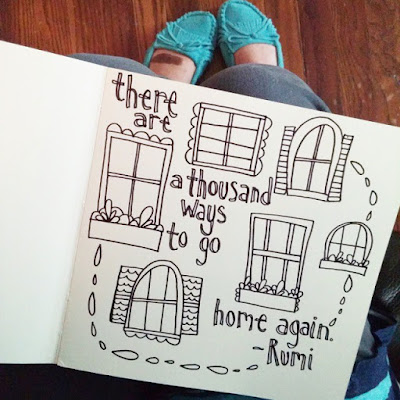 there
are
a thousand
ways
to go
home again.
-Rumi